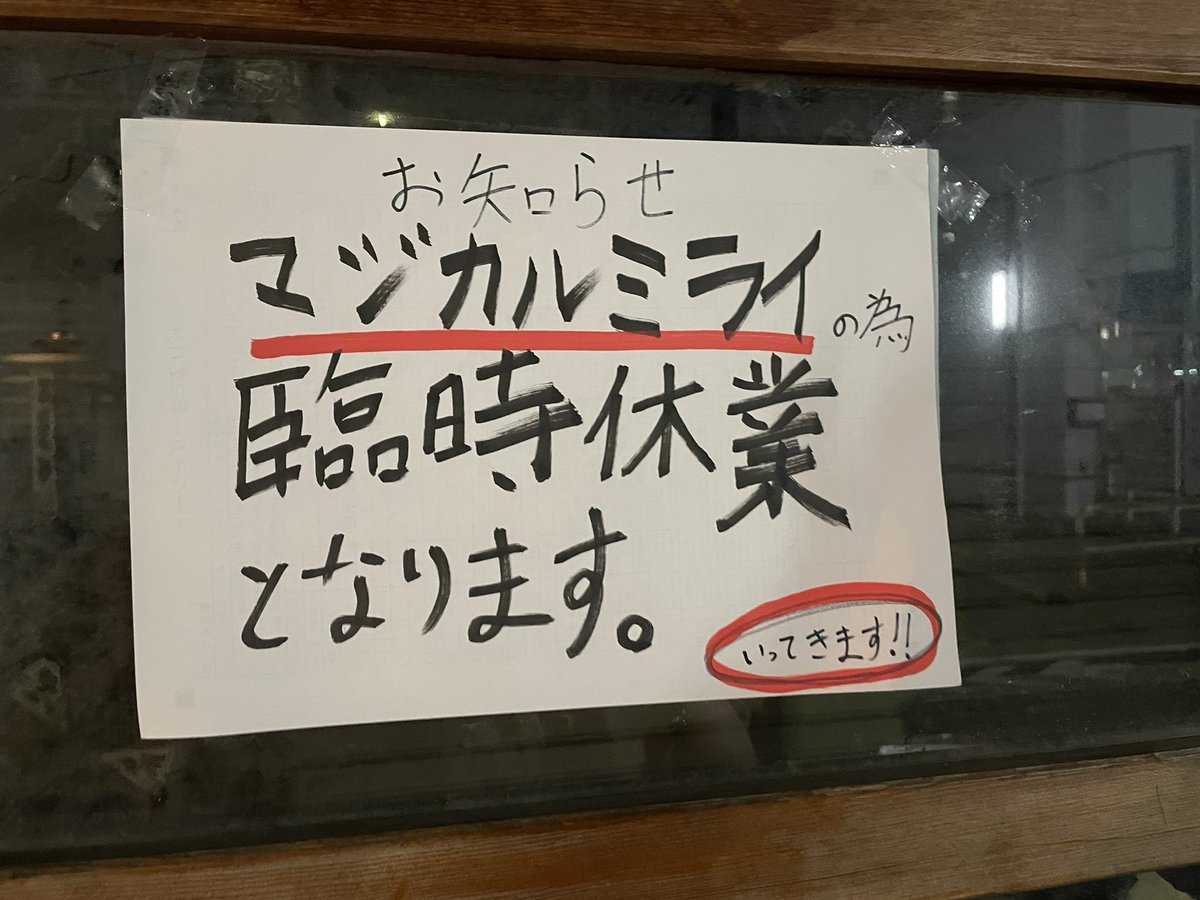 お知らせ
マジカルミライの為
臨時休業
となります。
いってきます!!